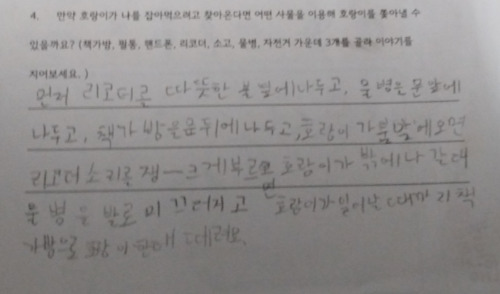 4. 만약 호랑이가 나를 잡아먹으려고 찾아온다면 어떤 사물을 이용해 호랑이를 쫓아낼 수
있을까요? (책가방, 필통, 핸드폰, 리코더, 소고, 물병, 자전거 가운데 3개를 골라 이야기를
지어보세요. )
먼저 리코더를 따뜻한 불 밑에 나두고, 물병을 문 앞에
나두고, 책가방을 문 뒤에 나두고, 호랑이가 불 앞에 오면
리코더 소리를 크게 부르면 호랑이가 밖에 나갈 때
물병을 발로 미끄러지고 호랑이가 일어날 때까지 책
가방으로 호랑이한태 때려요.